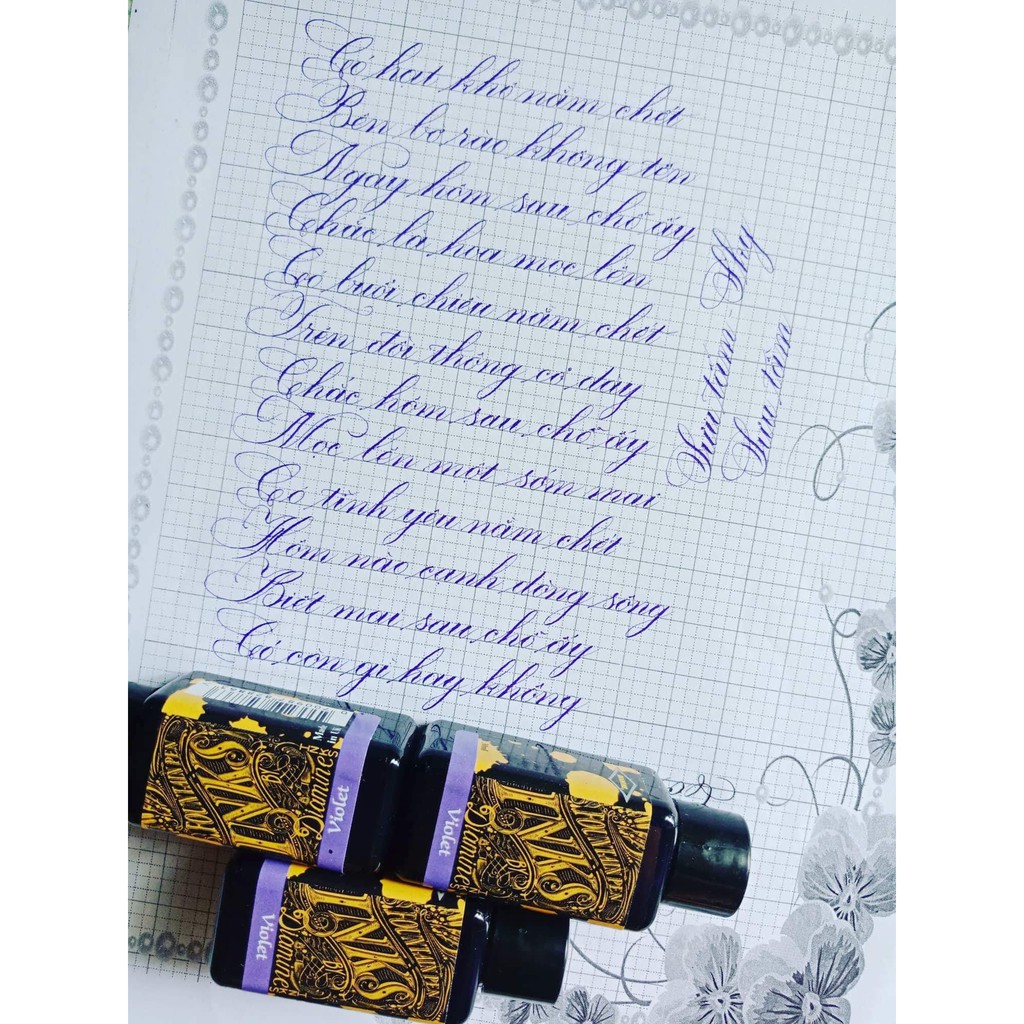 Có hạt khô nằm chết
Bên bờ rào không tên
Ngày hôm sau chỗ ấy
Chắc là hoa mọc lên
Có buổi chiều nằm chết
Trên đồi thông cỏ dày
Chắc hôm sau chỗ ấy
Mọc lên một sớm mai
Có tình yêu nằm chết
Hôm nào cạnh dòng sông
Biết mai sau chỗ ấy
Có còn gì hay không
Sưu tầm - Sky
Sưu tầm
INK
Diamine
Violet
INK
Diamine
Violet
INK
Diamine
Violet